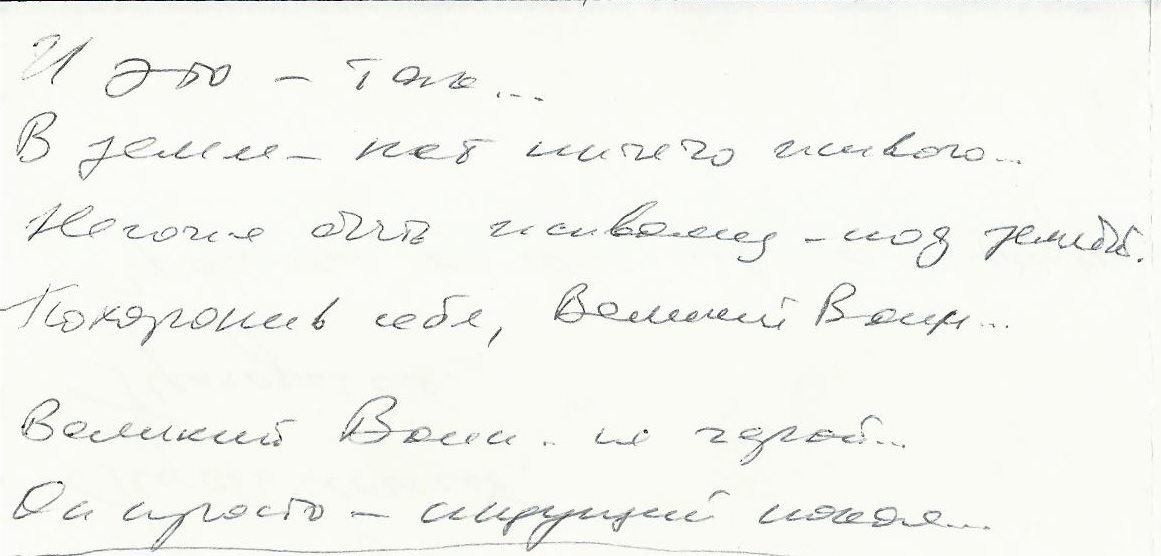 И это – так...
В земле – нет ничего живого...
Негоже быть живому – под землёй.
Похоронив себя, Великий Воин...
Великий Воин – не герой...
Он просто – ищущий покоя...